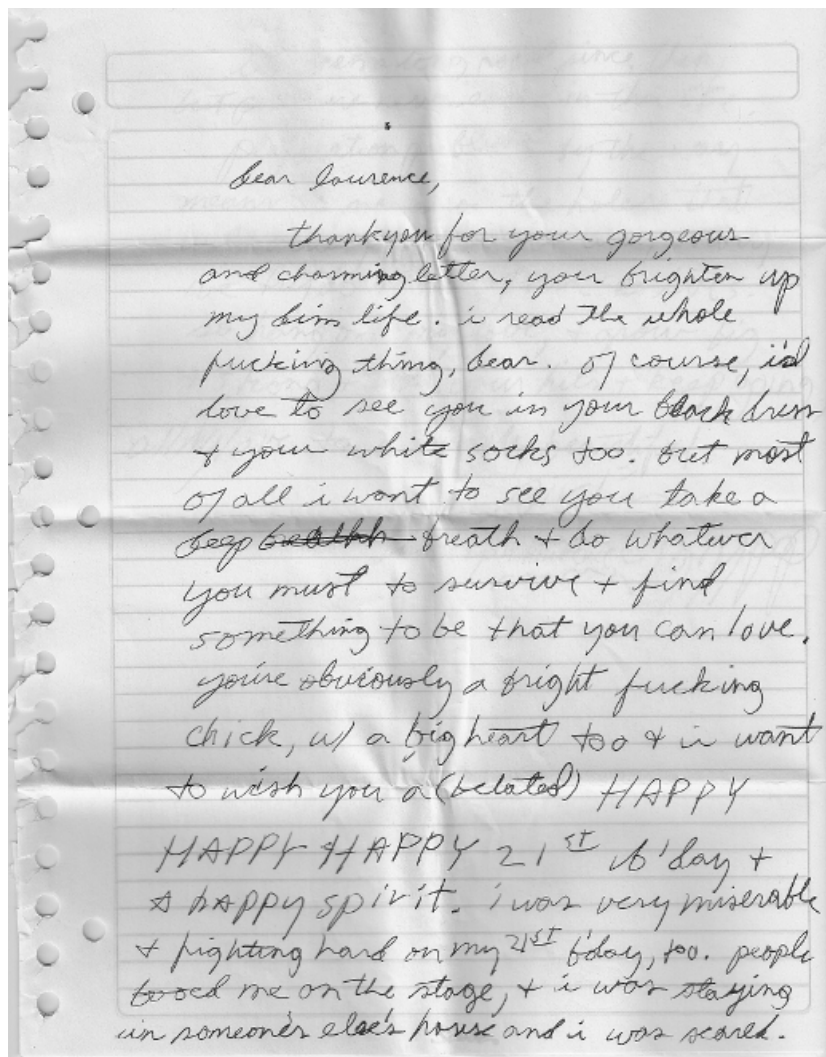 dear laurence,
thankyou for your gorgeous
and charming letter, you brighten up
my dim life. i read the whole
fucking thing, dear. of course, i'd
love to see you in your black dress
& your white socks too. but most
of all i want to see you take a
deep breath & do whatever
you must to survive & find
something to be that you can love.
you're obviously a bright fucking
chick, w/ a big heart too & i want
to wish you a (belated) HAPPY
HAPPY HAPPY 21ST b'day &
a happy spirit. i was very miserable
& fighting hard on my 21ST b'day, too. people
booed me on the stage, & i was staying
in someone else's house and i was scared.